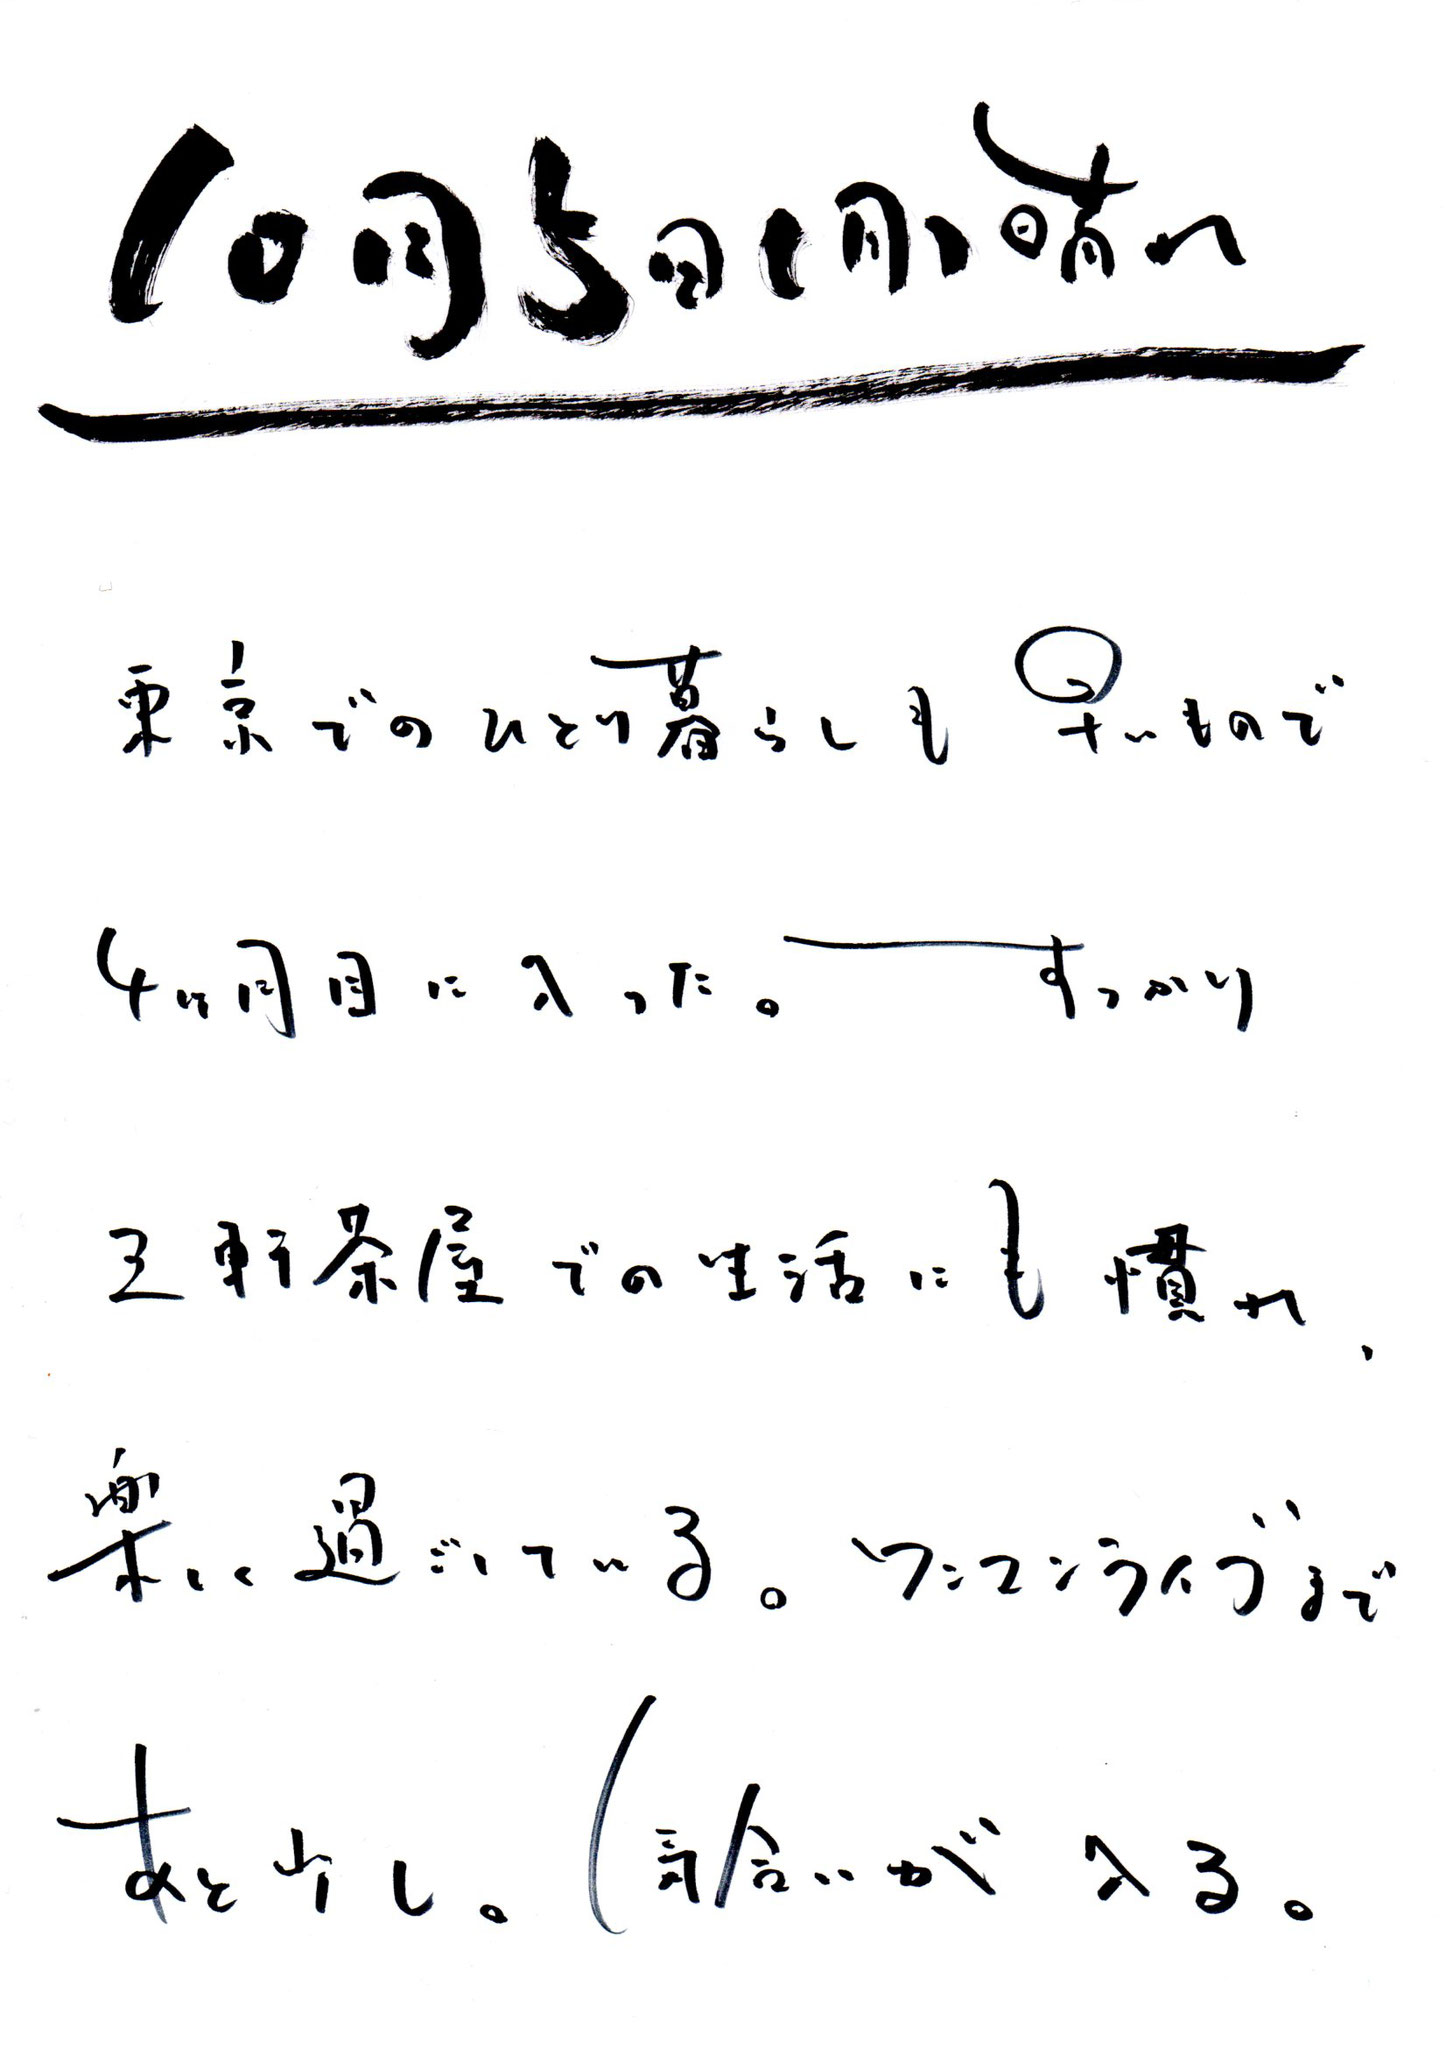 10月5日(月)晴れ
東京でのひとり暮らしも早いもので
4ヶ月目に入った。すっかり
三軒茶屋での生活にも慣れ、
楽しく過ごしている。ワンマンライブまで
あと少し。気合いが入る。